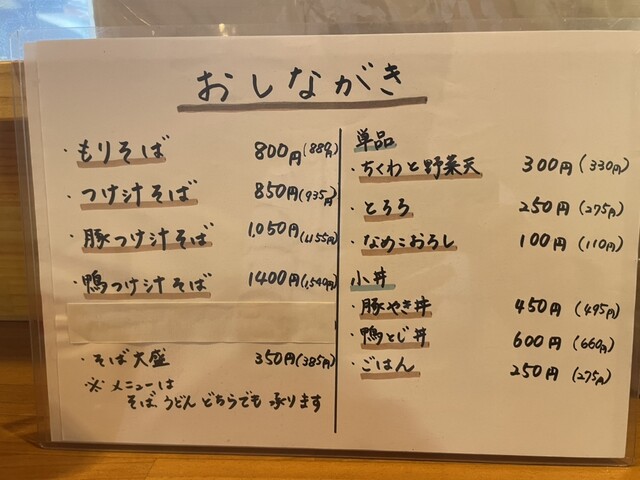 おしながき
・もりそば 800円(880円)
・つけ汁そば 850円(935円)
・豚つけ汁そば 1,050円(1,155円)
・鴨つけ汁そば 1400円(1,540円)
・そば大盛 350円(385円)
※メニューは
そば、うどんどちらでも承ります
単品
・ちくわと野菜天 300円(330円)
・とろろ 250円(275円)
・なめこおろし 100円(110円)
小丼
・豚やき丼 450円(495円)
・鴨とじ丼 600円(660円)
・ごはん 250円(275円)